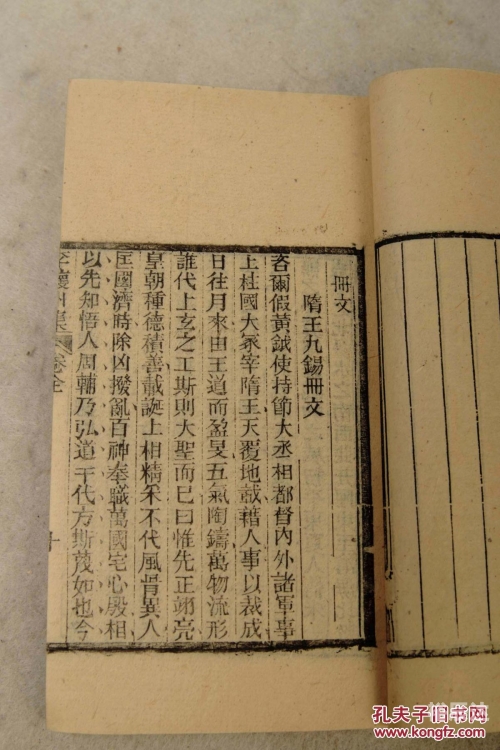 冊文
隋王九錫冊文
咨爾假黃鉞使持節大丞相都督內外諸軍事
上柱國大冢宰隋王天覆地載藉人事以裁成
日往月來由王道而盈昃五氣陶鑄萬物流形
誰代上玄之工斯則大聖而已曰惟先正翊亮
皇朝種德積善載誕上相精采不代風骨異人
匡國濟時除凶撥亂百神奉職萬國宅心殿相
以先知悟人周輔乃弘道于代方斯蔑如也今
李懷州集 卷全
孔夫子旧书网
www.kongfz.com